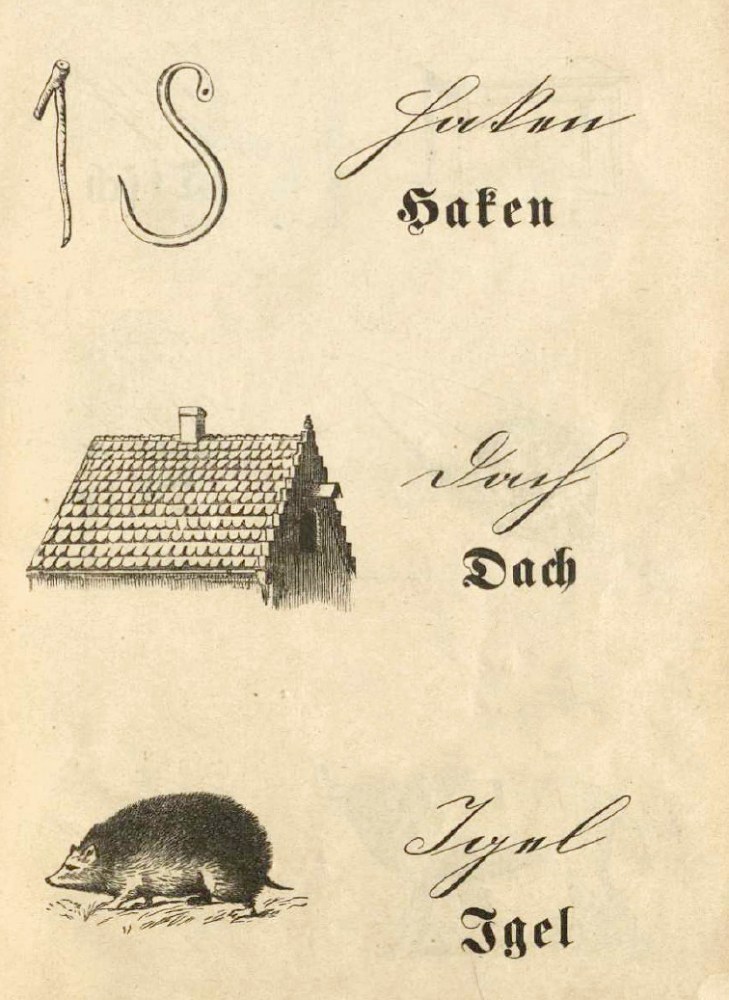 Haken
Haken
Dach
Dach
Igel
Igel